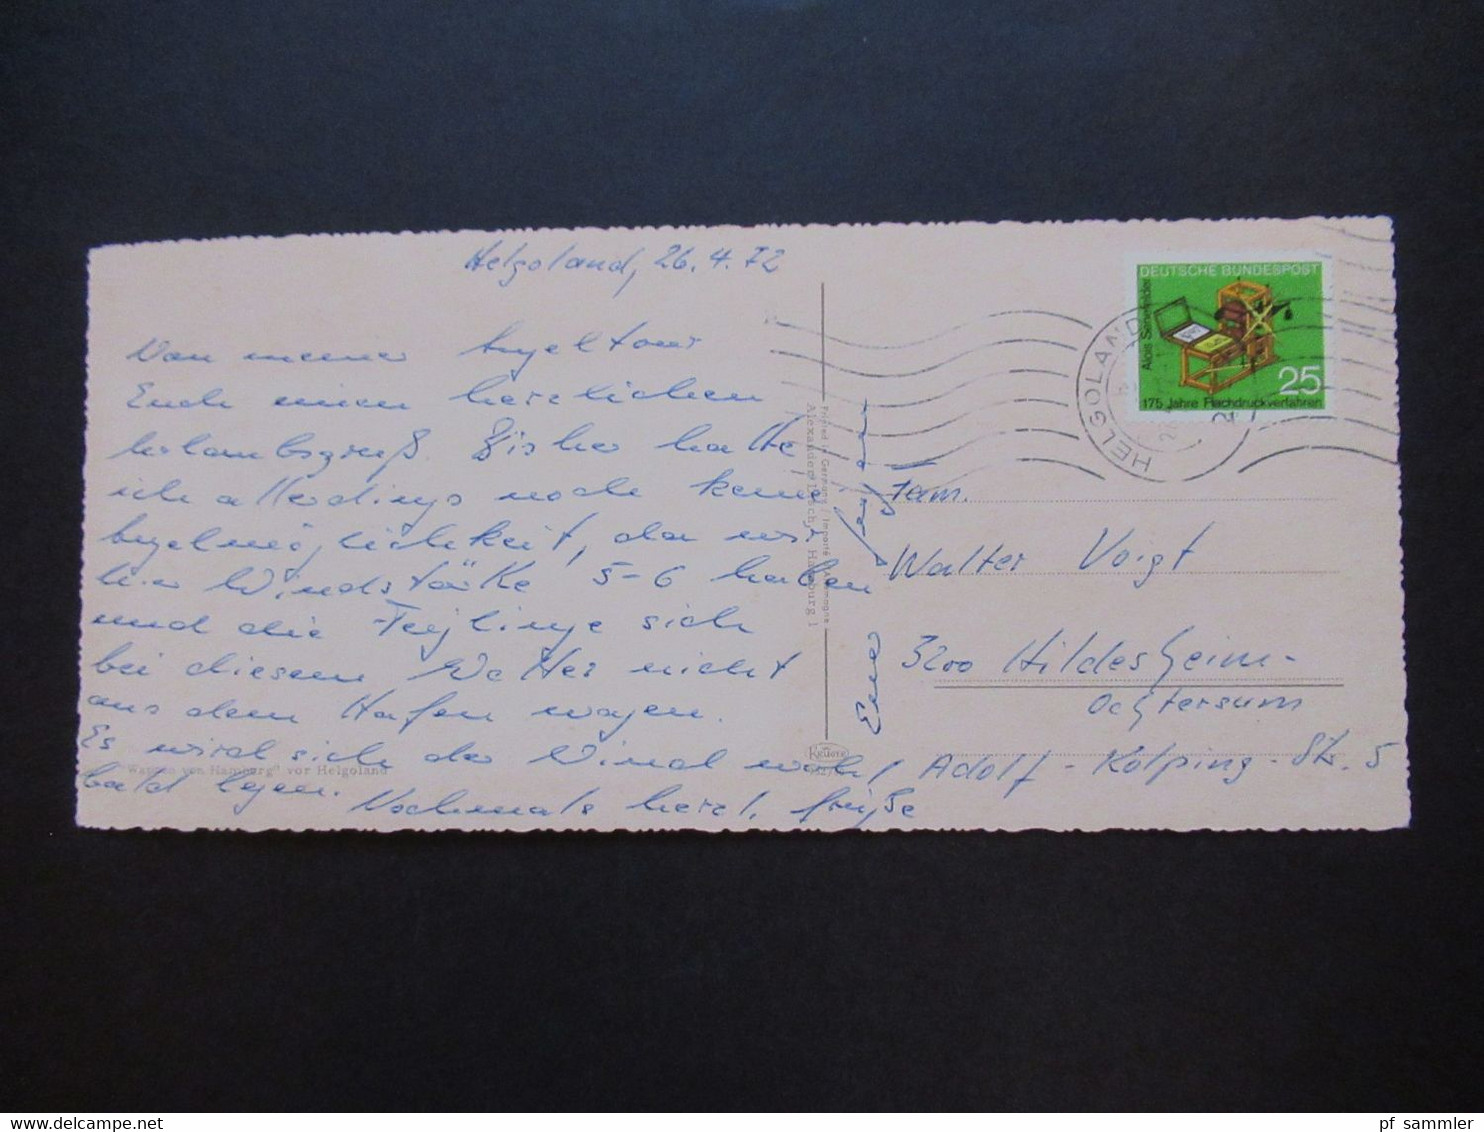 Helgoland, 26.4.72
Von meiner Angeltour
Euch einen herzlichen
Bisher hatte
ich allerdings noch keine
Angelmöglichkeit, da wir
hier Windstärke 5-6 haben
und die sich
bei diesem Wetter nicht
aus dem Hafen wagen.
Es wird sich der Wind wohl
bald legen.
Nochmals herzl. Grüße
Euer
"Wappen von Hamburg" vor Helgoland
Printed in Germany / Importé d'Allemagne
Hamburg 1
KRÜGER
HELGOLAND
DEUTSCHE BUNDESPOST
Alois Senefelder
25
175 Jahre Flachdruckverfahren
Fam.
Walter Voigt
3200 Hildesheim-
Ochtersum
Adolf-Kolping-Str. 5
pf_sammler